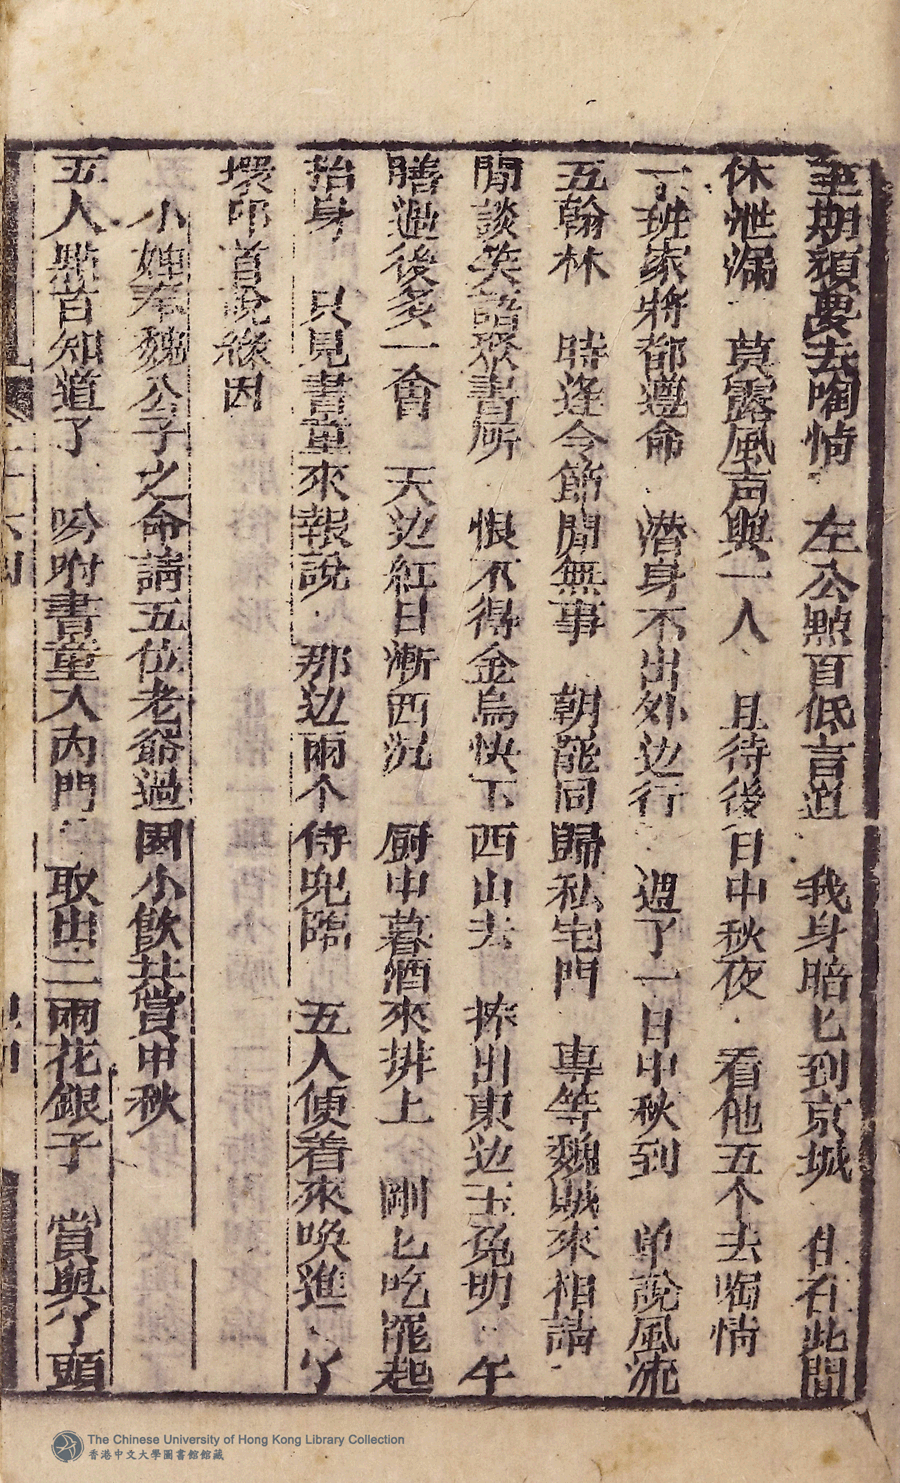 至期須要去啕情 左公點首低言道 我身暗匕到京城 住在此間
休泄漏 莫露風声與一人 且待後日中秋夜 看他五个去啕情
一班家將都遵命 潛身不出外边行 週了一日中秋到 单說風流
五翰林 時逢令節閒無事 朝罷同歸私宅門 專等魏賊來相請
閒談笑語聚書所 恨不得金烏快下西山去 捧出東边玉兔明 午
膳過後多一會 天边紅日漸西沉 厨中暮酒來排上 剛匕吃罷起
抬身 只見書童來報說 那边兩个侍兒臨 五人便着來唤進 丫
環叩首說緣因
小婢奉魏公子之命請五位老爺過園小飲共賞中秋
五人點首知道了 吟咐書童入內門 取出二兩花銀子 賞與丫頭
The Chinese University of Hong Kong Library Collection
香港中文大學圖書館館藏